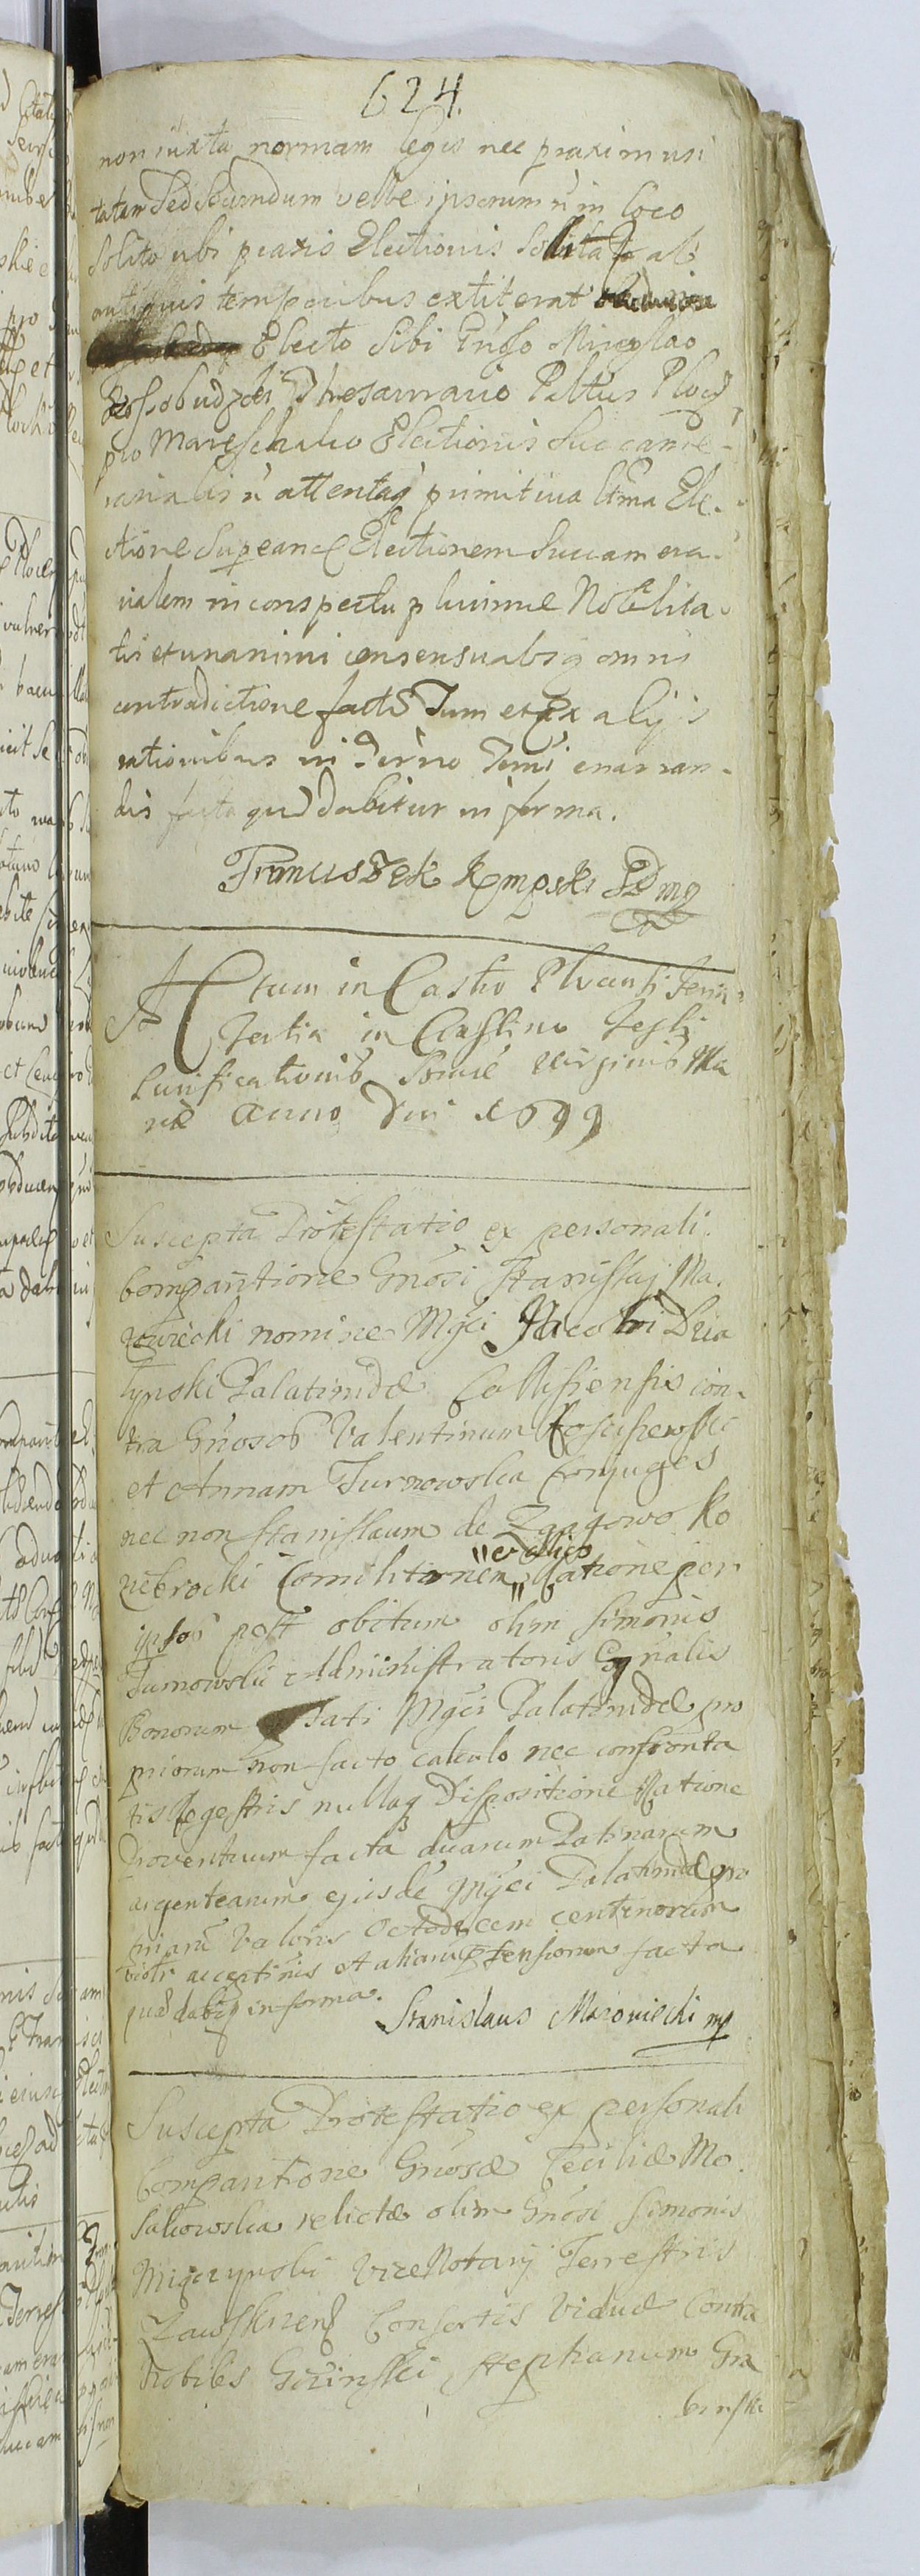 624.
non iuxta normam legis nec praxim usi
tatam Sed Secundum velle ipsorum ñ in loco
Solito ubi praxis Electionis Solita ab
antiquis temporibus extiterat
Electo Sibi Gñso Miecżlao
Rossobudzki Thesaurario Paltus Ploc
pro Mareschalco Electionis Succame-
rarialis ñ attentaq primitiva ltma Ele-
ctione Supeanĕ Electionem Succamera-
rialem in conspectu plurimæ Nobilita-
tis et unanimi consensu absq omni
contradictione factū Tum et ex alijs
rationibus in Termo Termi enarran-
dis facta qud dabitur in forma.
Franciszek Kempski
Actum in Castro Plocensi Feria
Tertia in Crastino Festi
Purificationis Sanctæ Virginis Ma
riæ Anno Dni 1699
Suscepta Protestatio ex personali
Comparitione Gñosi Stanislaj Ma-
zowiecki nomine Mgci Jacobi Dzia
łynski Palatinidæ Callisiensis con-
tra Gñosos Valentinum
et Annam Turnowska Conjuges
nec non Stanislaum de Zgagowo Ko
nebrocki Comilitonem Ratione per
ipsos post obitum olim Simonis
Turnowski Administratoris Gñalis
Bonorum Mgci Palatinidæ pro
priorum non facto calculo nec confronta
tis Regestris nullaq Dispositione Ratione
Proventuum facta duarum Patinarum
argentearum ejusdē Mgci Palatinidæ pro
priarū Valoris Octodecem centenorum
acceptionis et aliarū facta
quæ dabiʒ in forma.
Stanislaus Mazowiecki mp
Suscepta Protestatio ex personali
Comparitione Gñosæ Ceciliæ Mo-
sakowska relictæ olim Gñosi Simonis
Migczynski Vice Notarij Terrestris
Zawskrnens Consortis Viduæ Contra
Nobiles Stephanum Gra
binski